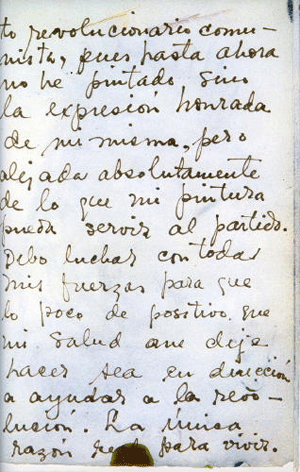 to revolucionario comu-
nista, pues hasta ahora
no he pintado sino
la expresión honrada
de mi misma, pero
alejada absolutamente
de lo que mi pintura
pueda servir al partido.
Debo luchar con todas
mis fuerzas para que
lo poco de positivo que
mi salud me deje
hacer sea en dirección
a ayudar a la revo-
lución. La única
razón real para vivir.